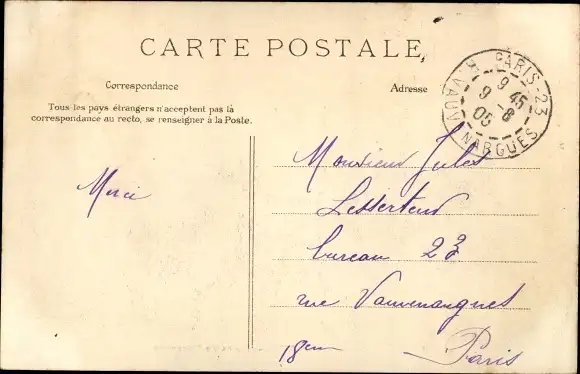 CARTE POSTALE
Correspondance
Adresse
Tous les pays étrangers n'acceptent pas là
correspondance au recto, se renseigner à la Poste.
PARIS-23
R. VAUVENARGUES
9 45
9 -8
05
Merci
Monsieur Jules
Lesserteur
bureau 23
rue Vauvenargues
18em Paris